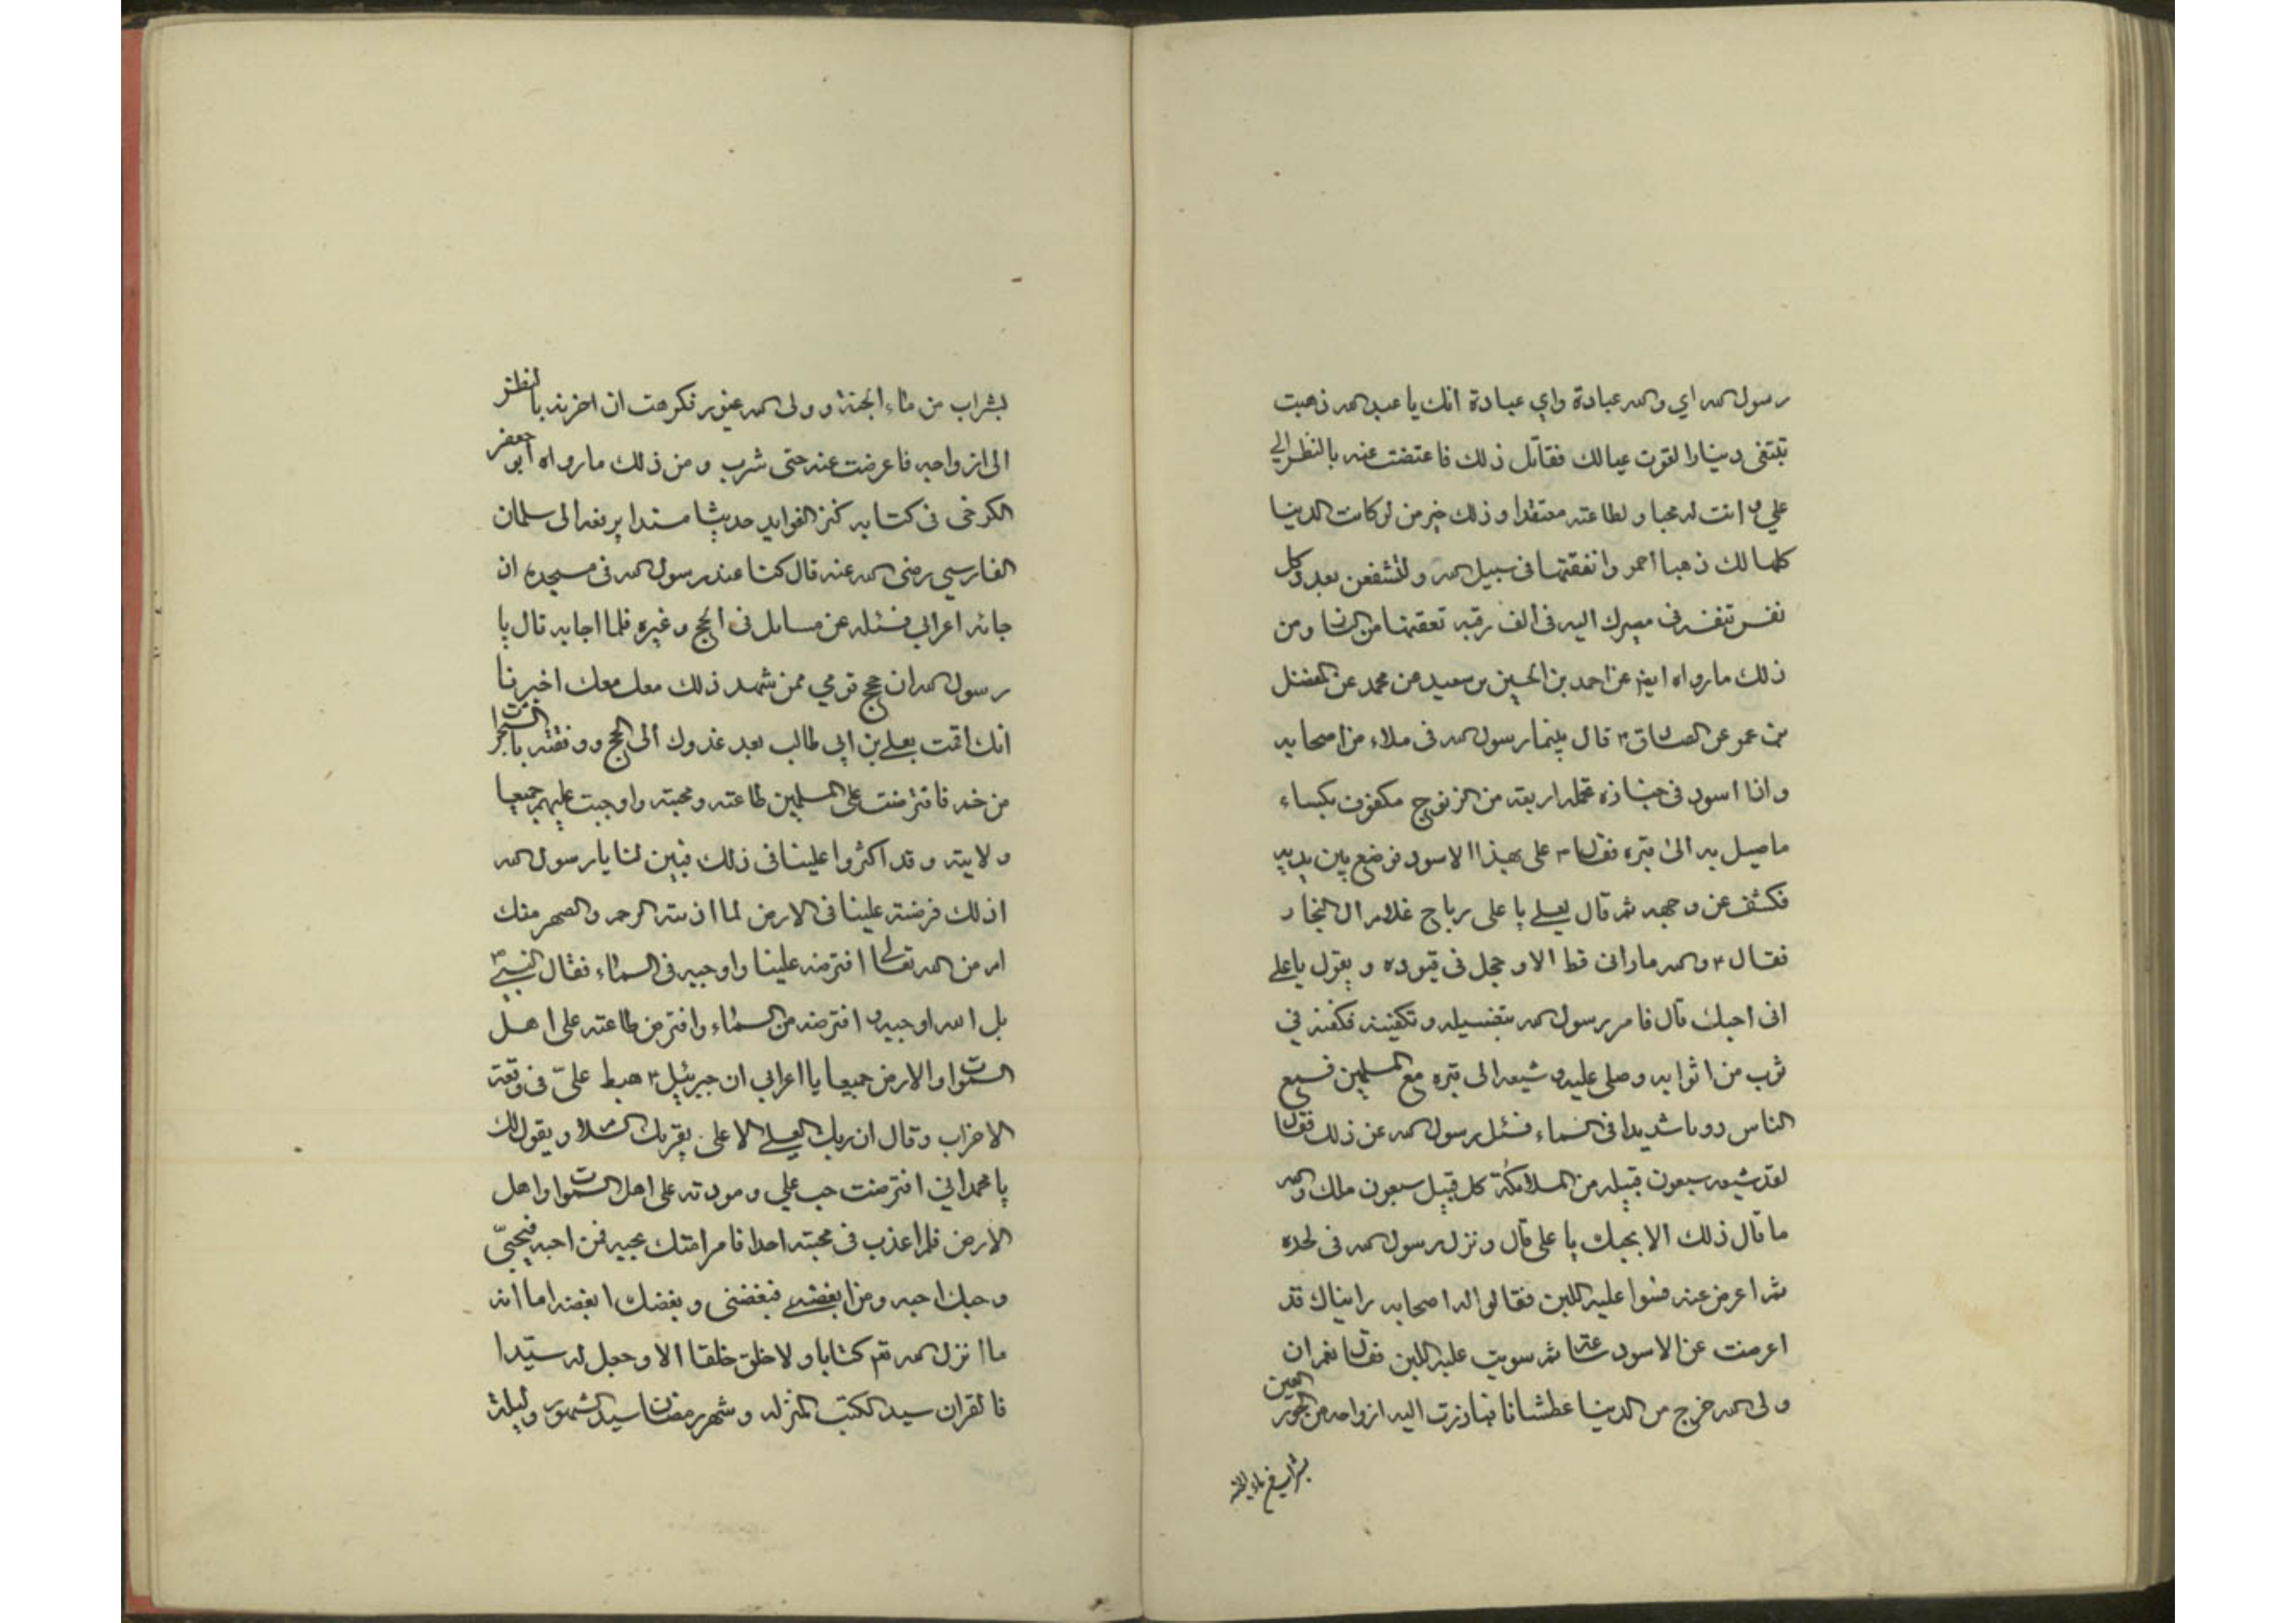 رسول الله اي والله عبادة واي عبادة انك يا عبد الله ذهبت
تبتغى دينارا لقوت عيالك ففاتك ذلك فاعتضت عنه بالنظر الي
علي و انت له محبا و لطاعته معتقدا و ذلك خير من لو كانت الدنيا
كلها لك ذهبا احمر وانفقتها فى سبيل الله ولتشفعن بعدد كل
نفس تنفسه فى مصيرك اليه فى الف رقبه تعتقها من النار ومن
ذلك مارواه ايضا عن احمد بن الحسين بن سعيد عن محمد عن المفضل
بن عمر عن الصادق ع قال بينما رسول الله فى ملاء من اصحابه
واذا اسود فى جنازه تحمله اربعة من الزنوج مكفوف بكساء
ماصيل به الى قبره فقال ص على بهذا الاسود فوضع بين يديه
فكشف عن وجهه ثم قال لعلي يا على رباح غلام ال النجار
فقال ع والله ماراني قط الا وحجل فى قيوده و يقول يا علي
انى احبك قال فامر رسول الله بتغسيله و تكفينه فكفنه في
ثوب من اثوابه وصلى عليه و شيعه الى قبره مع المسلمين فسمع
الناس دويا شديدا فى السماء فسئل رسول الله عن ذلك فقال
لقد شيعه سبعون قبيله من الملائكة كل قبيل سبعون ملك والله
ما قال ذلك الا بحبك يا على قال و نزل رسول الله فى لحده
ثم اعرض عنه فسوا عليه اللبن فقالوا له اصحابه رايناك قد
اعرضت عن الاسود ساعة ثم سويت عليه اللبن فقال نعم ان
ولى الله خرج من الدنيا عطشانا فبادرت اليه ازواجه من الحور العين
بشراب من ماء الجنة
بشراب من ماء الجنة و ولى الله غيور فكرهت ان احزنه بالنظر
الى ازواجه فاعرضت عنه حتى شرب و من ذلك مارواه ابو جعفر
الكرخى فى كتابه كنز الفوايد حديثا مسندا يرفعه الى سلمان
الفارسي رضى الله عنه قال كنا عند رسول الله فى مسجده ان
جائه اعرابي فسئله عن مسايل فى الحج و غيره فلما اجابه قال يا
رسول الله ان حجج قومي ممن شهد ذلك معك معك اخبرنا
انك اقمت بعلي بن ابي طالب بعد غدوك الى الحج و وقفته بالشجرات
من خم فافترضت على المسلمين طاعته و محبته واوجبت عليهم جميعا
ولايته وقد اكثروا علينا فى ذلك فبين لنا يا رسول الله
اذلك فرضته علينا فى الارض لما اذنته الرحم والصهر منك
ام من الله تعالى افترضه علينا واوجبه فى السماء فقال النبى ص
بل الله اوجبه و افترضه من السماء وافترض طاعته على اهل
السموات والارض جميعا يا اعرابي ان جبرئيل ع هبط علىّ فى وقعة
الاحزاب وقال ان ربك العلي الاعلى يقربك السلام ويقول لك
يا محمد اني افترضت حب علي و مودته على اهل السموات واهل
الارض فلم اعذب فى محبته احدا فامر امتك بحبه فمن احبه فبحبّي
وحبك احبه ومن ابغضه فببغضى وبغضك ابغضه اما انه
ما انزل الله تعم كتابا ولا خلق خلقا الا وجعل له سيّدا
فالقران سيد الكتب المنزله و شهر رمضان سيد الشهور وليلة